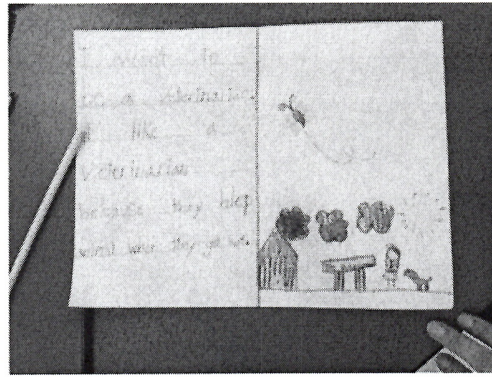 I want to
be a veterinarian
I like a
veterinarian
because they help
when they